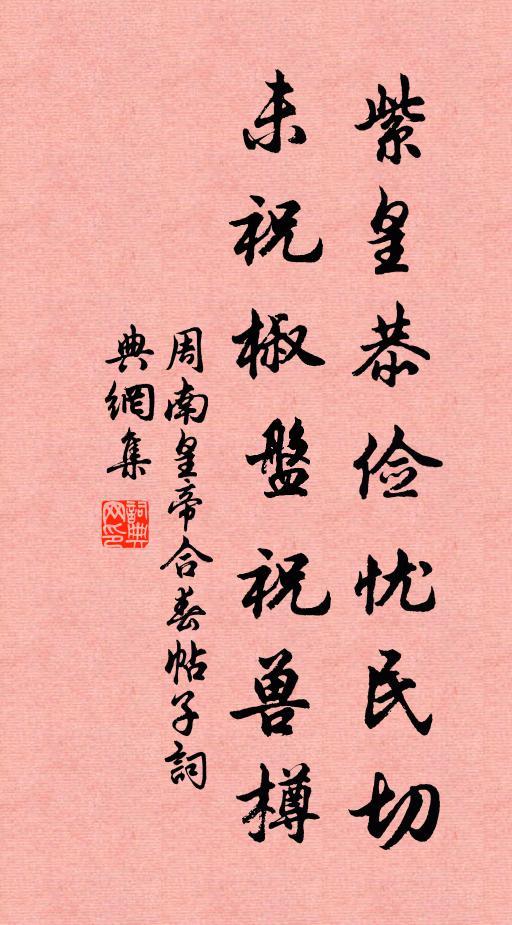 紫皇恭俭忧民切
未祝椒盤祝兽樽
周南皇帝合春帖子詞
典網集
詞典网印